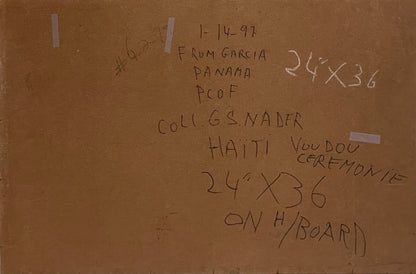 1-14-97
FROM GARCIA
PANAMA
PCOF
24"X36
COLL. G.S. NADER
HAITI VOUDOU
CEREMONIE
24"X36
ON H/BOARD